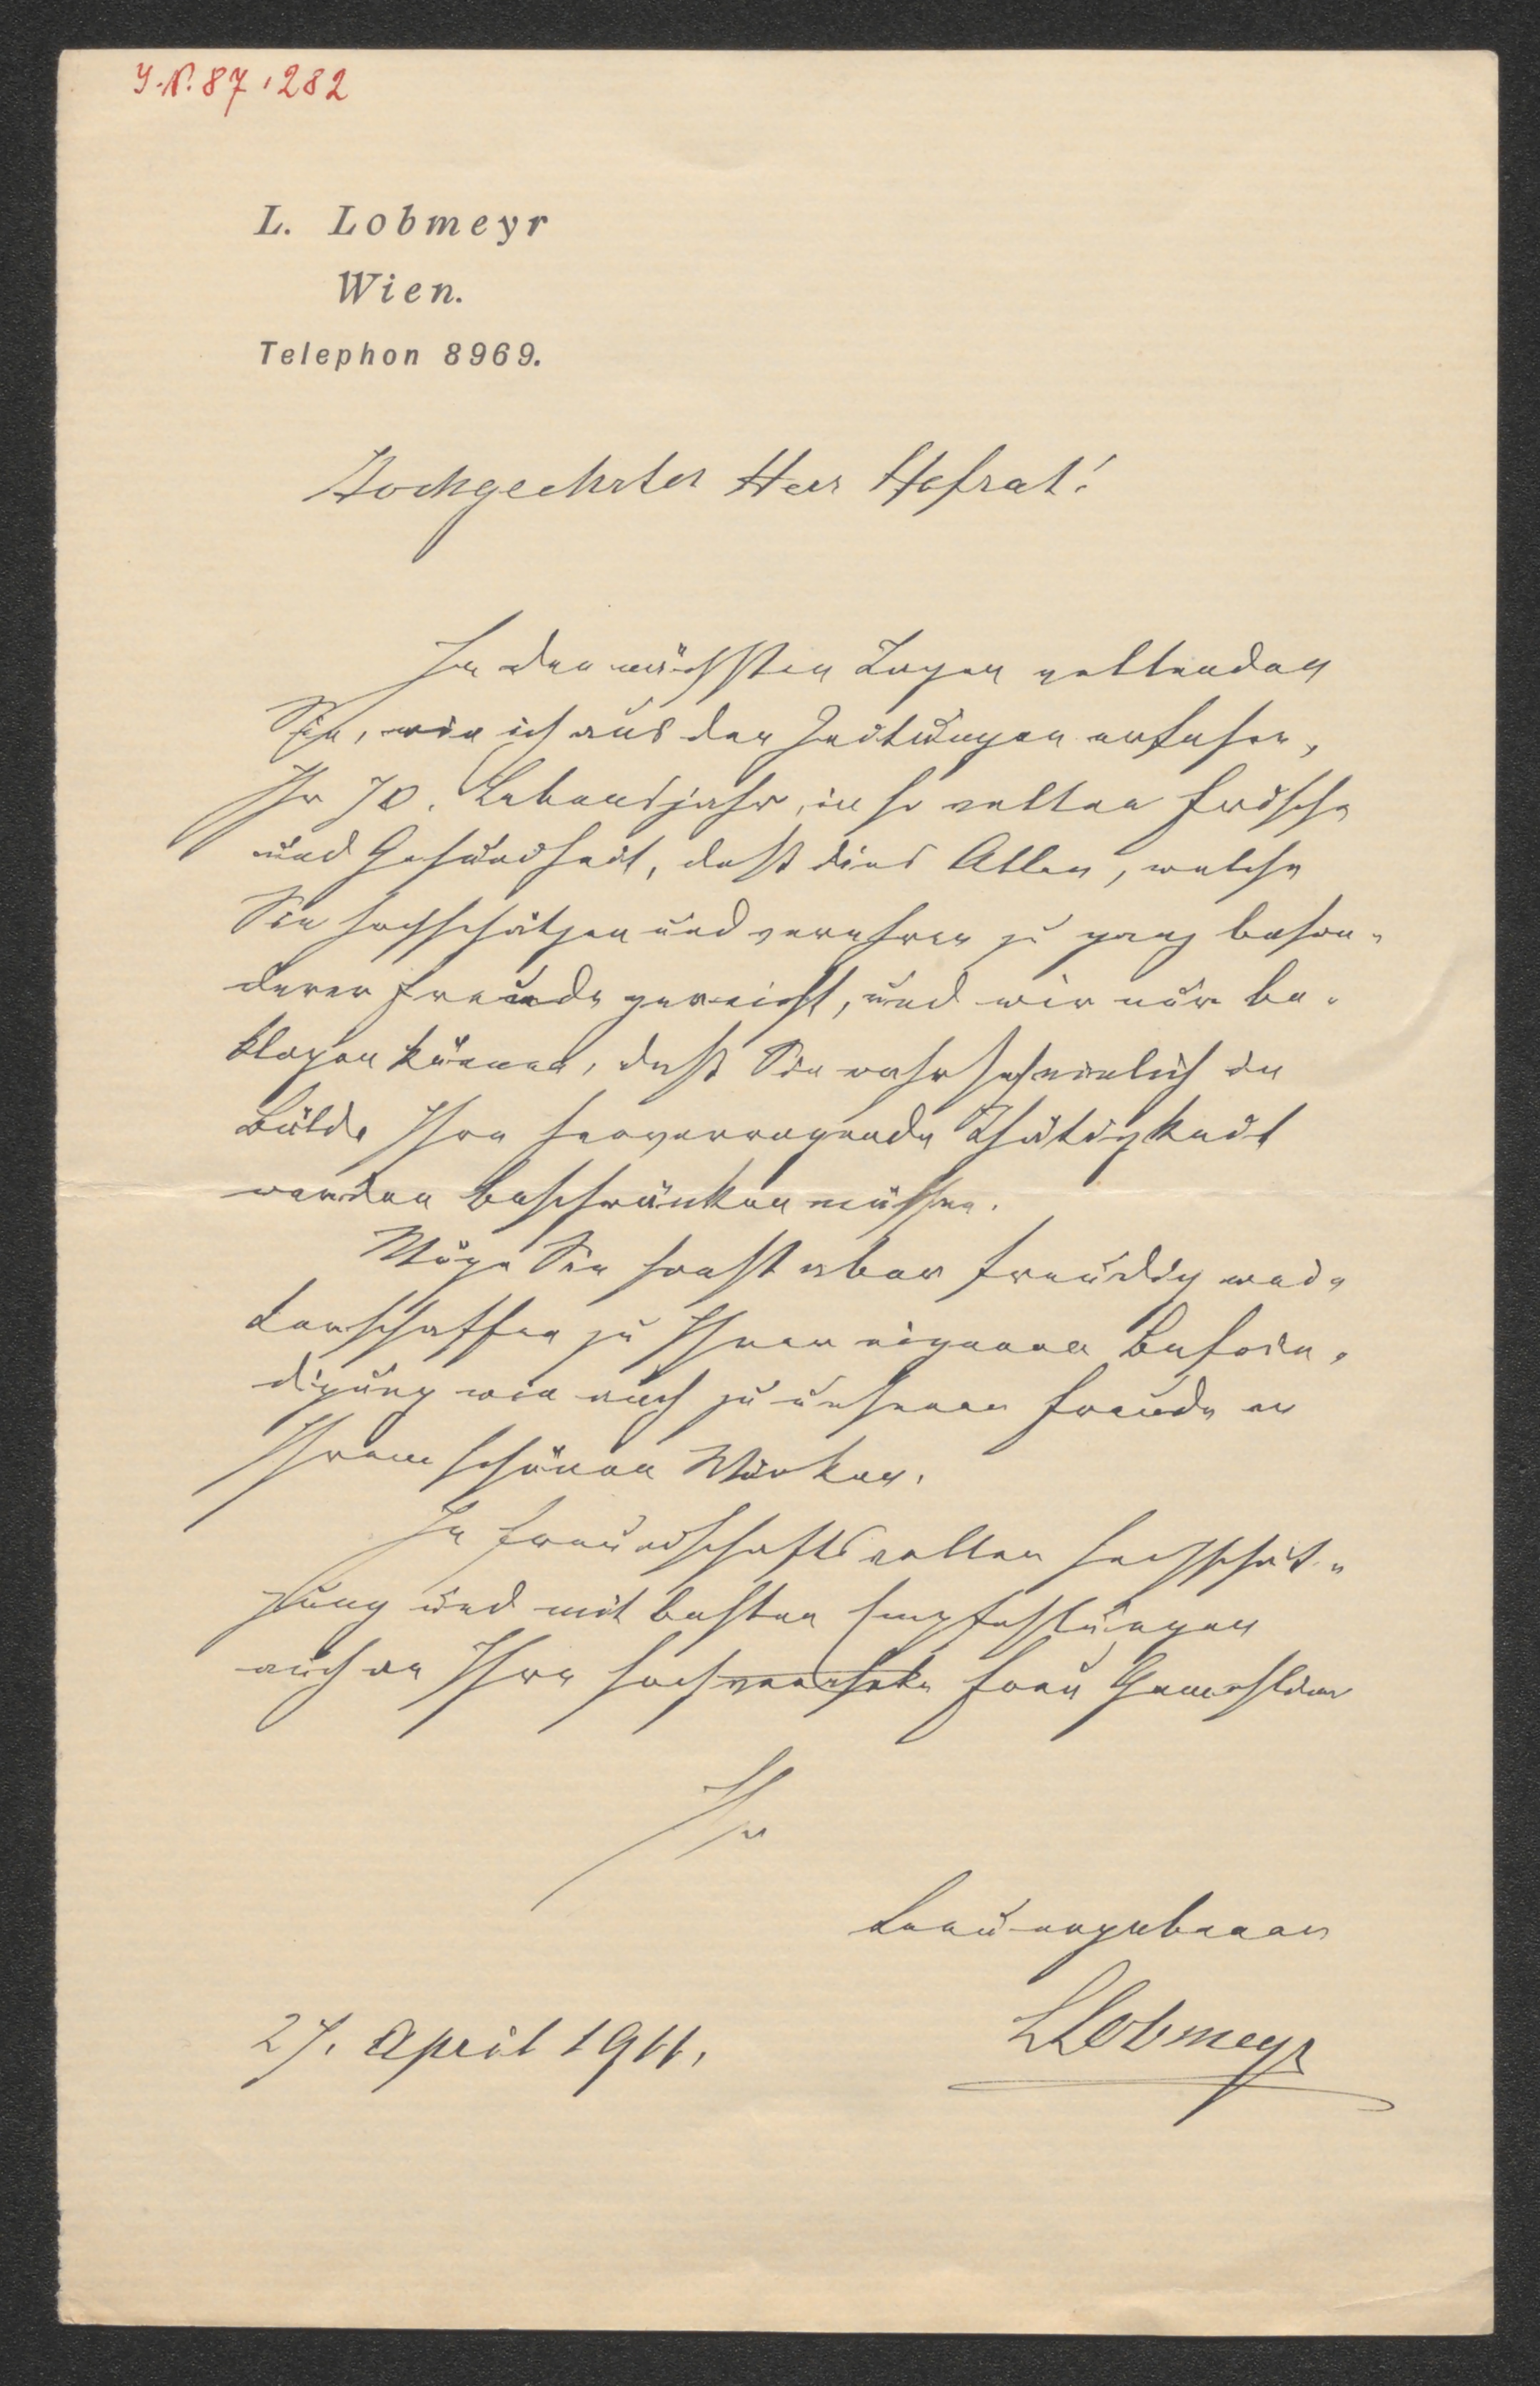 I.N. 87.282
L. Lobmeyr
Wien.
Telephon 8969.
Hochgeehrter Herr Hofrat!
In den nächsten Tagen vollenden
Sie, wie ich aus den Zeitungen erfahre,
Ihr 70. Lebensjahr, in so voller Frische
und Gesundheit, daß dies Allen, welche
Sie hochschätzen und verehren zu ganz beson-
derer Freude gereicht, und wir nur be-
klagen können, daß Sie wahrscheinlich in
Bälde Ihre hervorragende Thätigkeit
werden beschränken müssen.
Möge Sie sonst aber freudig wei-
terschaffen zu Ihrer eigenen Befrie-
digung wie auch zu unserer Freude an
Ihrem schönen Wirken.
In freundschaftsvoller Hochschät-
zung und mit besten Empfehlungen
auch an Ihre hochverehrte Frau Gemahlin
Ihr
treu ergebener
LLobmeyr
27. April 1911.